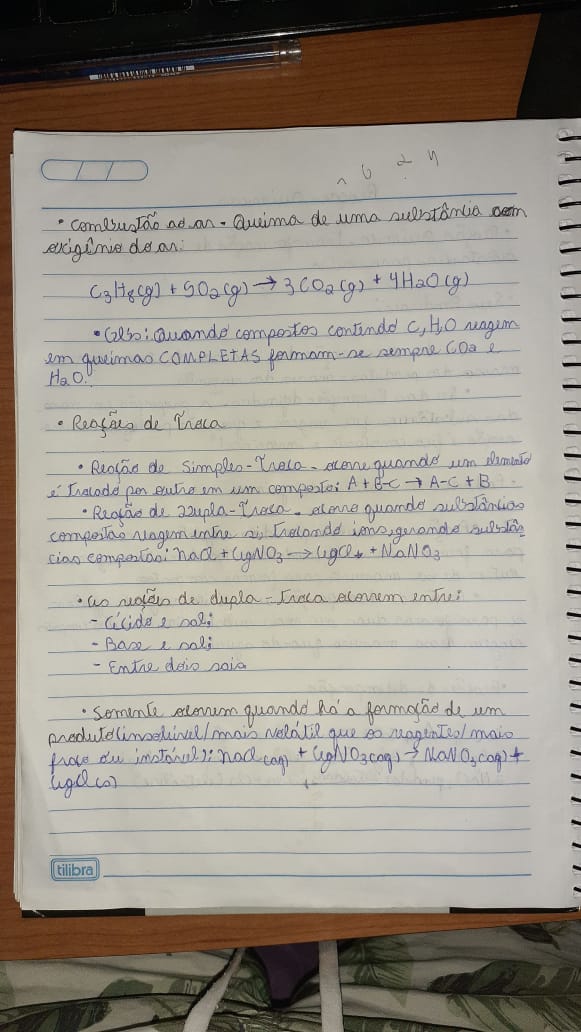 • Combustão ao ar - Queima de uma substância com
oxigênio do ar:
C3H8(g) + 5O2(g) → 3CO2(g) + 4H2O(g)
• Obs: Quando compostos contendo C, H, O reagem
em queimas COMPLETAS formam-se sempre CO2 e
H2O.
• Reações de Troca
• Reação de Simples-Troca - ocorre quando um elemento
é trocado por outro em um composto: A + B-C → A-C + B
• Reação de Dupla-Troca - ocorre quando substâncias
compostas reagem entre si, trocando íons, gerando substân
cias compostas: NaCl + AgNO3 → AgCl + NaNO3
• As reações de dupla-troca ocorrem entre:
- Ácido e sal;
- Base e sal;
- Entre dois sais
• Somente ocorrem quando há a formação de um
produto (insolúvel/mais volátil que os reagentes/mais
fraco ou instável): NaCl(aq) + AgNO3(aq) → NaNO3(aq) +
AgCl(s)
tilibra